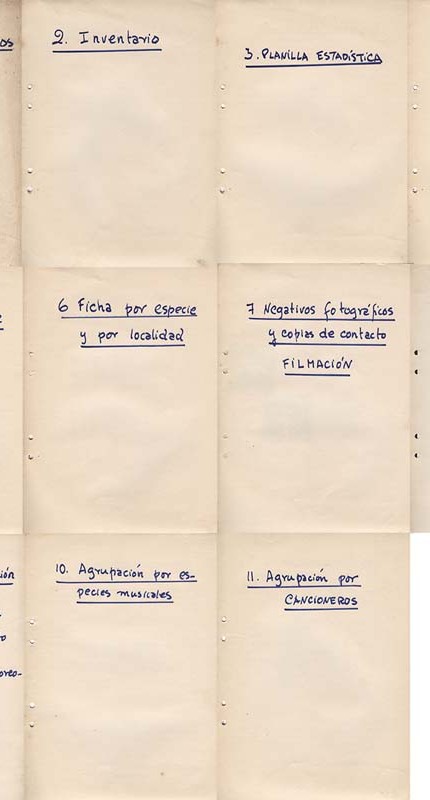 os
2. Inventario
3. PLANILLA ESTADÍSTICA
6 Ficha por especie
y por localidad
7 Negativos fotográficos
y copias de contacto
FILMACIÓN
ión
10. Agrupación por es-
pecies musicales
11. Agrupación por
CANCIONEROS
oreo-